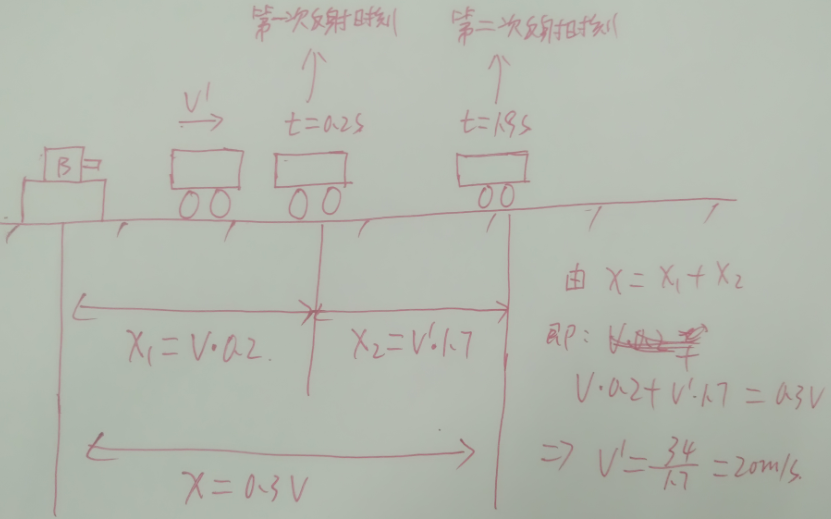 第一次反射时刻
第二次反射时刻
V'
t=0.2s
t=1.9s
B
X₁=V·0.2
X₂=V'·1.7
X=0.3V
由 X=X₁+X₂
即:
V·0.2+V'·1.7=0.3V
⇒ V'=34/1.7=20m/s.